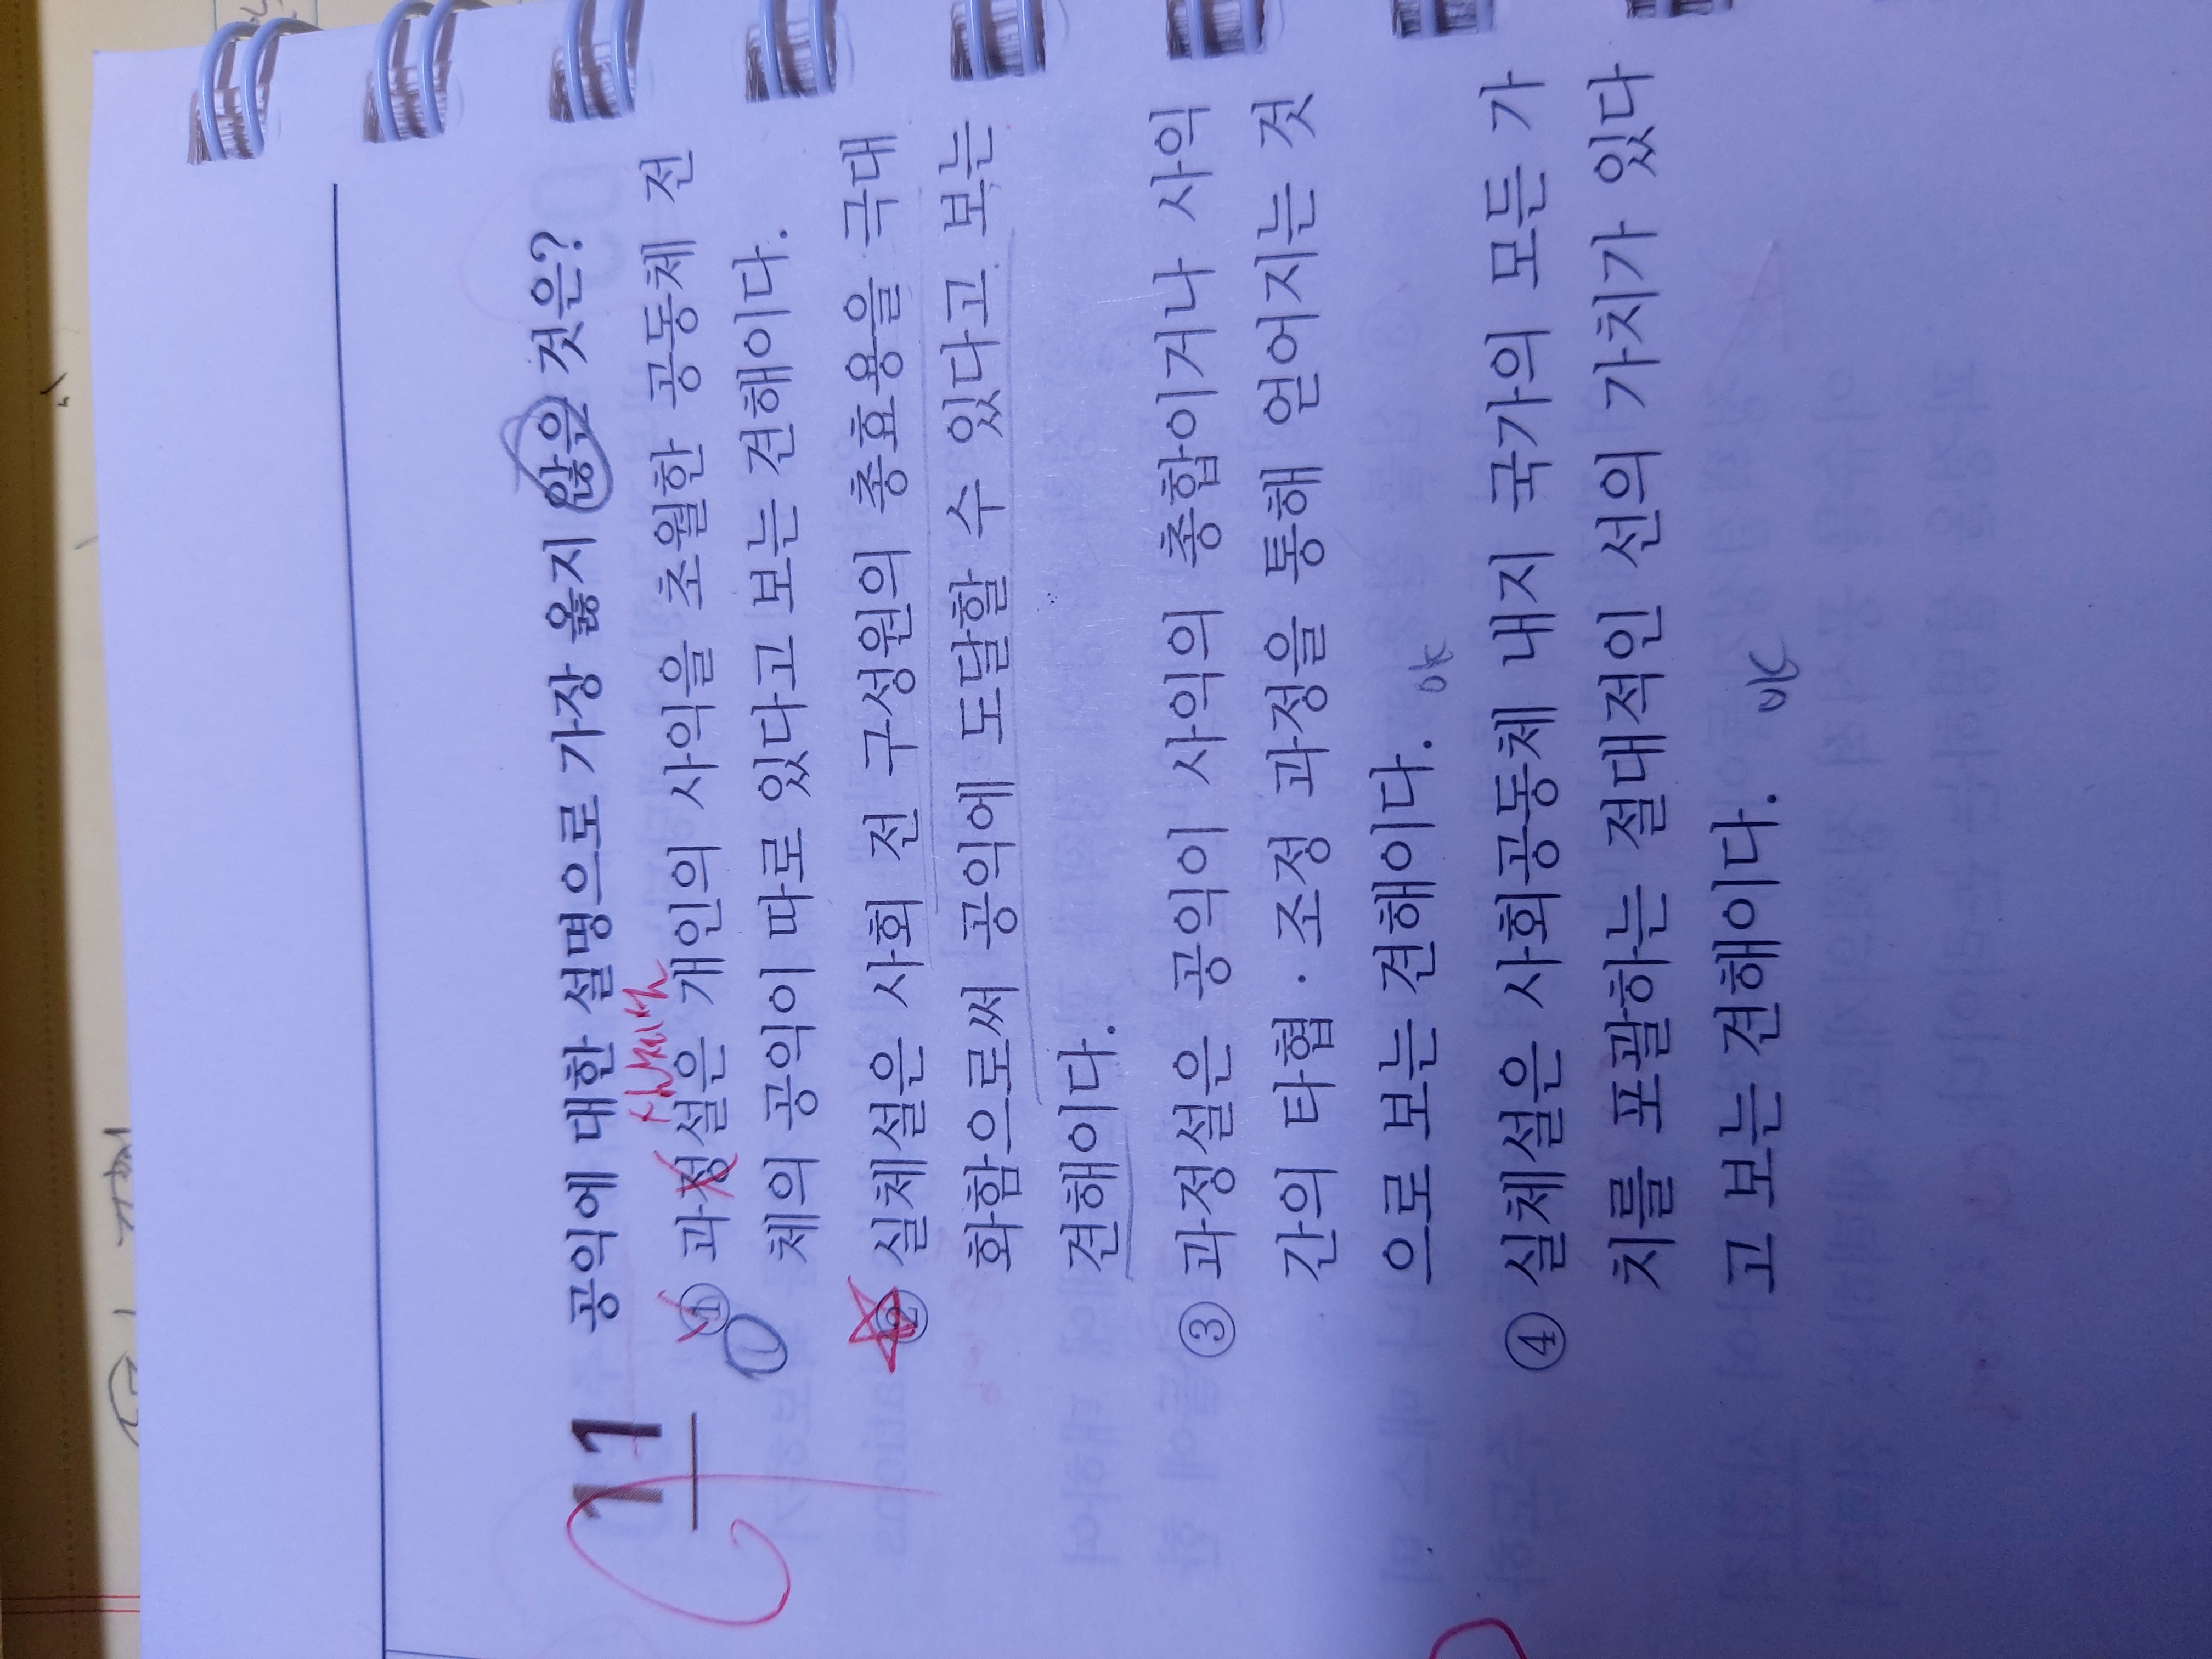 11
공익에 대한 설명으로 가장 옳지 않은 것은?
실체설
① 과정설은 개인의 사익을 초월한 공동체 전
체의 공익이 따로 있다고 보는 견해이다.
② 실체설은 사회 전 구성원의 총효용을 극대
화함으로써 공익에 도달할 수 있다고 보는
견해이다.
③ 과정설은 공익이 사익의 총합이거나 사익
간의 타협·조정 과정을 통해 얻어지는 것
으로 보는 견해이다. ok
④ 실체설은 사회공동체 내지 국가의 모든 가
치를 포괄하는 절대적인 선의 가치가 있다
고 보는 견해이다. ok